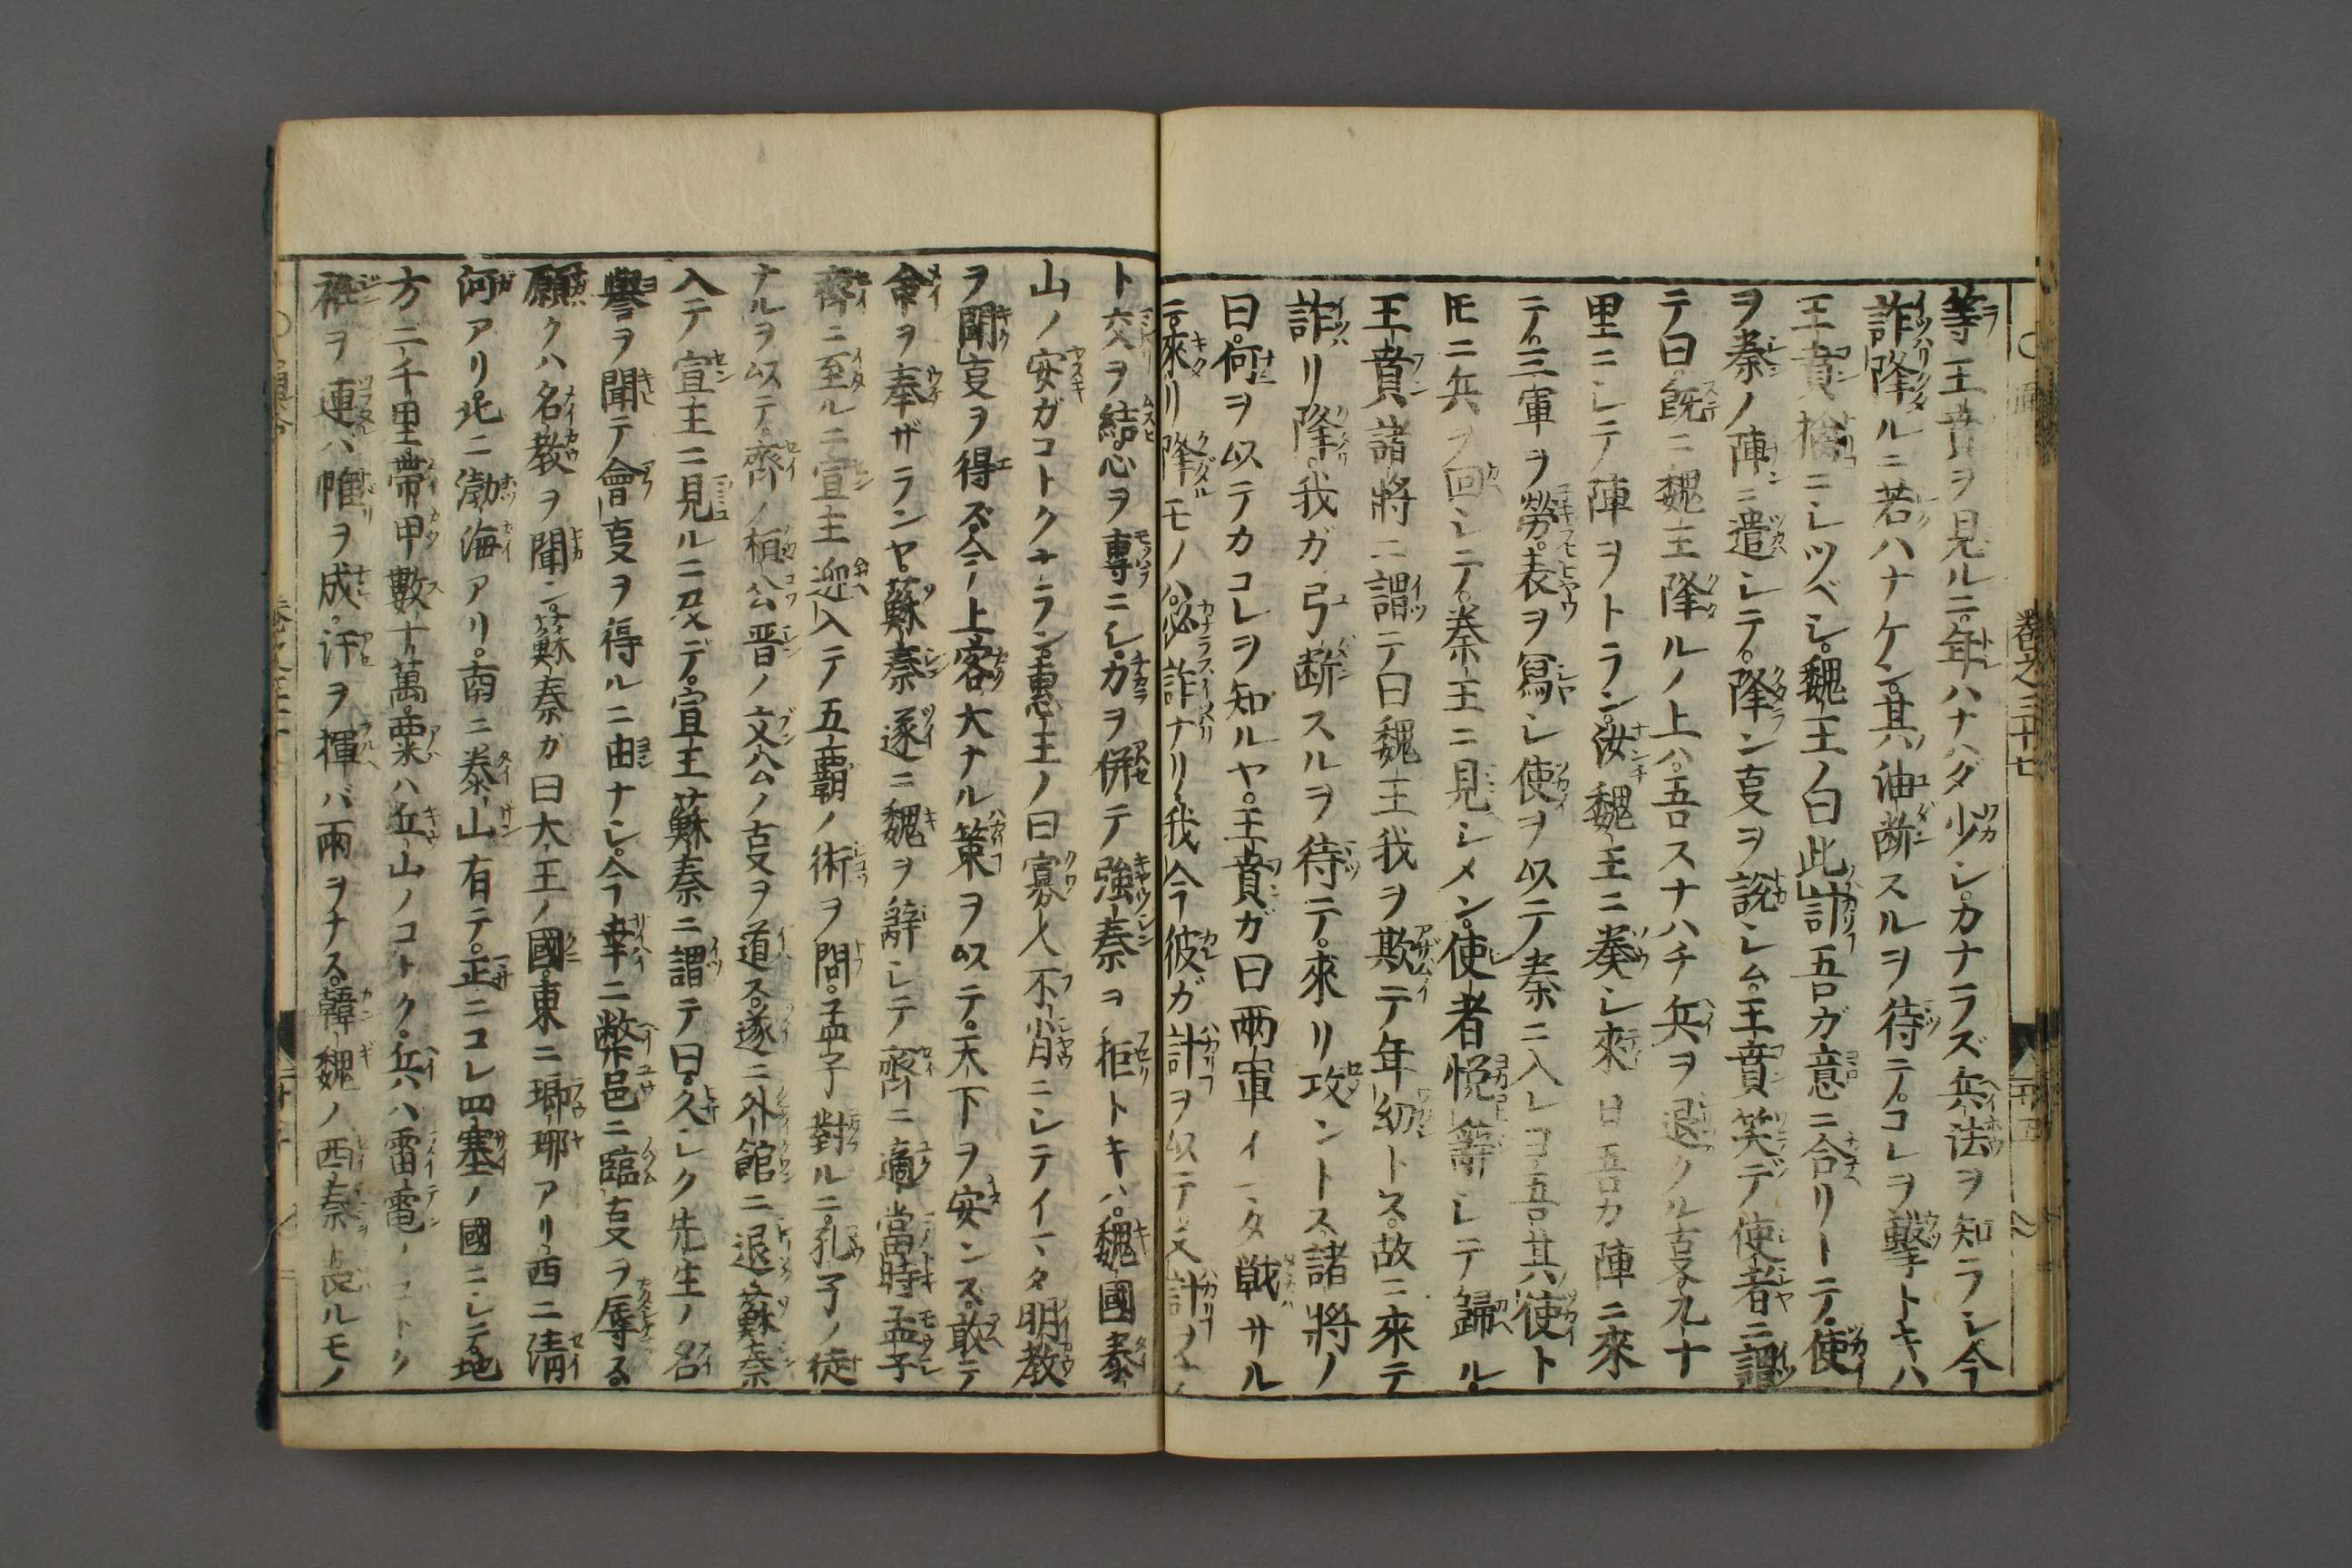 等王賁ヲ見ルニ。年ハナハダ少シ。カナラズ兵法ヲ知ラシ今
詐降ルニ若ハナケン。其ノ油断スルヲ待テ。コレヲ撃トキハ
王賁擒ニシツベシ。魏王ノ曰此計吾ガ意ニ合リトテ。使
ヲ秦ノ陣ニ遣シテ。降ラン叓ヲ説シム。王賁笑デ使者ニ謂
テ曰。既ニ魏主降ルノ上ハ。吾スナハチ兵ヲ退クル叓。九十
里ニシテ陣ヲトラン。汝魏王ニ奏シ來日吾カ陣ニ來
テ。三軍ヲ勞。表ヲ寫シ使ヲ以テ秦ニ入レヨ吾其使ト
トモニ兵ヲ回シテ。秦王ニ見シメン。使者悦辭シテ歸ル
王賁諸將ニ謂テ曰魏主我ヲ欺テ年幼トス。故ニ來テ
詐リ降。我ガ弓断スルヲ待テ。來リ攻ントス諸將ノ
曰。何ヲ以テカコレヲ知ルヤ。王賁ガ曰両軍イマタ戦サル
ニ來リ降モノハ。必詐ナリ。我今彼ガ計ヲ以テ又計ヲ
卷之三十七
ト交ヲ結。心ヲ專ニシ。力ヲ併テ強秦ヲ拒トキハ。魏國泰
山ノ安ガコトクナラン。惠王ノ曰寡人不肖ニシテイマタ明教
ヲ聞叓ヲ得ズ。今上客大ナル策ヲ以テ。天下ヲ安ンズ。敢テ
命ヲ奉ザランヤ。蘇秦遂ニ魏ヲ辭シテ齊ニ適。當時孟子
齊ニ至ルニ宣主迎入テ五覇ノ術ヲ問。孟子對ルニ。孔子ノ徒
ナルヲ以テ。齊ノ桓公晋ノ文公ノ叓ヲ道ス。遂ニ外館ニ退。蘇秦
入テ宣主ニ見ルニ及デ。宣王蘇秦ニ謂テ曰。久シク先生ノ名
譽ヲ聞テ會叓ヲ得ルニ由ナシ。今幸ニ弊邑ニ臨叓ヲ辱る。
願クハ名教ヲ聞ン。蘇秦ガ曰大王ノ國。東ニ瑯琊アリ。西ニ清
河アリ。北ニ渤海アリ。南ニ泰山有テ。正ニコレ四塞ノ國ニシテ。地
方二千里。帶甲數十萬。粟ハ丘山ノコトク。兵ハ雷電ノコトク
袵ヲ連ハ帷ヲ成。汗ヲ揮バ雨ヲナス。韓魏ノ西秦ト畏ルモノ